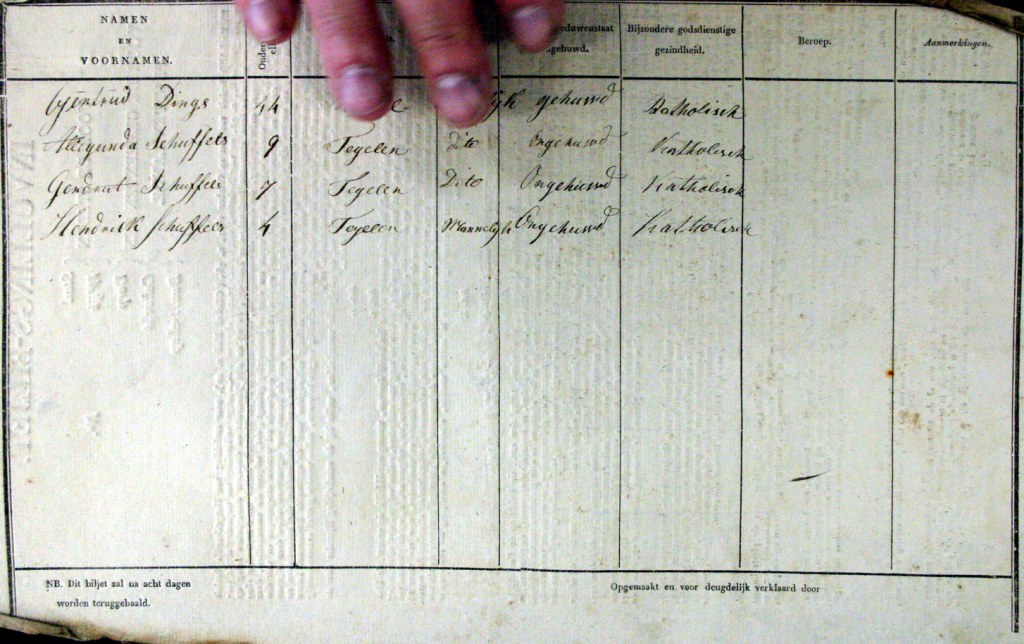 NAMEN
EN
VOORNAMEN.
Bijzondere godsdienstige
gezindheid.
Beroep.
Aanmerkingen.
Dings gehuwd Katholisch
Schuffels 9 Tegelen Dito Ongehuwd Katholisch
Schuffels 7 Tegelen Dito Ongehuwd Katholisch
Hendrick Schuffels 4 Tegelen Mannelyk Ongehuwd Katholisch
NB. Dit biljet zal na acht dagen
worden teruggehaald.
Opgemaakt en voor deugdelijk verklaard door